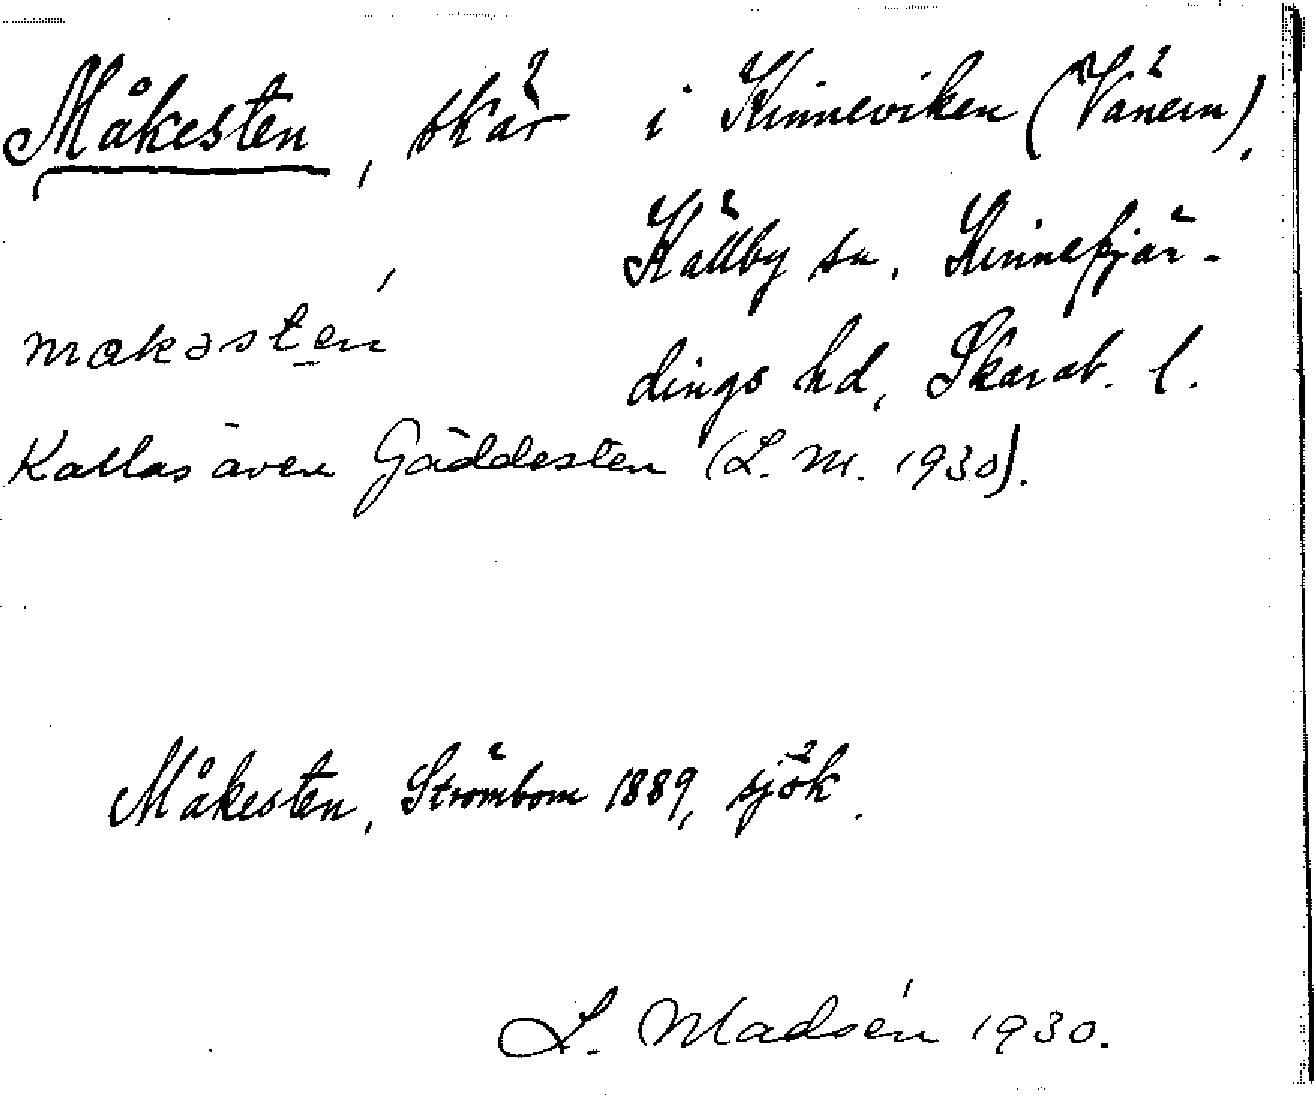 Måkesten, skär i Kinneviken (Vänern),
Källby sn, Kinnefjär-
måkəstén
dings hd, Skarab. l.
Kallas även Gäddesten (L. M. 1930).
Måkesten, Strömbom 1889, sjök.
L. Madsén 1930.